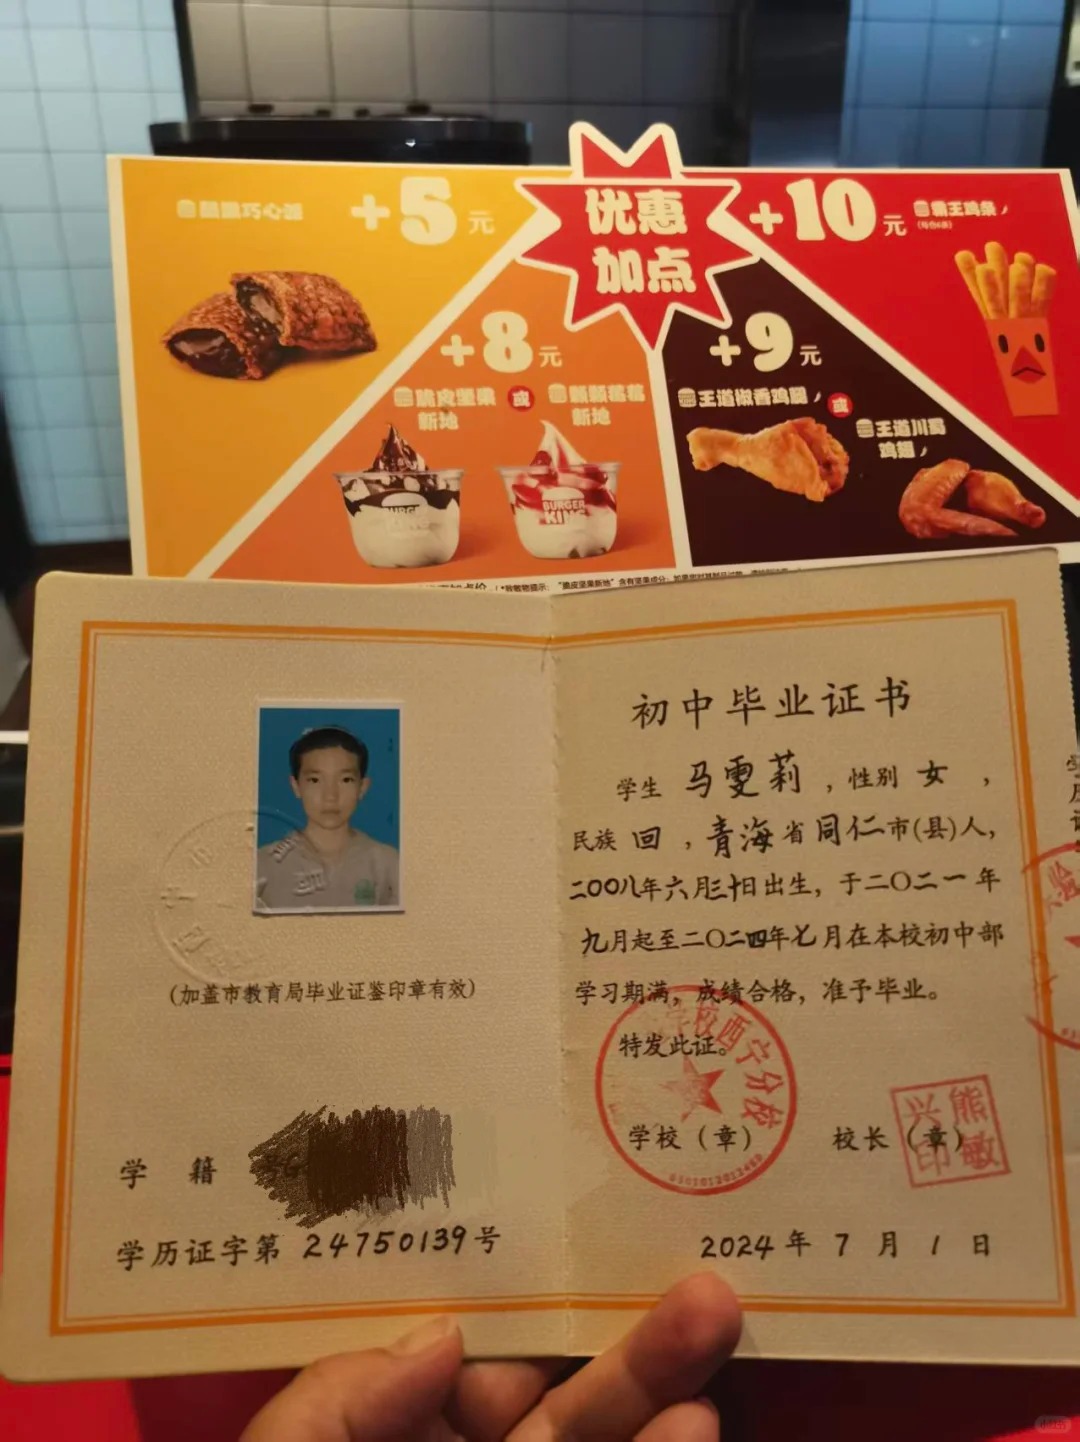 优惠
加点
黑黑巧心派
+5元
+10元
霸王鸡条
(每份6条)
+8元
脆皮坚果
新地
或
颗颗莓莓
新地
BURGER
KING
BURGER
KING
+9元
王道椒香鸡腿
或
王道川蜀
鸡翅
初中毕业证书
学生 马雯莉，性别 女，
民族 回，青海省同仁市(县)人，
二〇〇八年六月三十日出生，于二〇二一年
九月起至二〇二四年七月在本校初中部
学习期满，成绩合格，准予毕业。
特发此证。
学校西宁分校
学校（章）
校长（章）
熊敏兴印
2024年7月1日
(加盖市教育局毕业证鉴印章有效)
学籍
学历证字第 24750139号